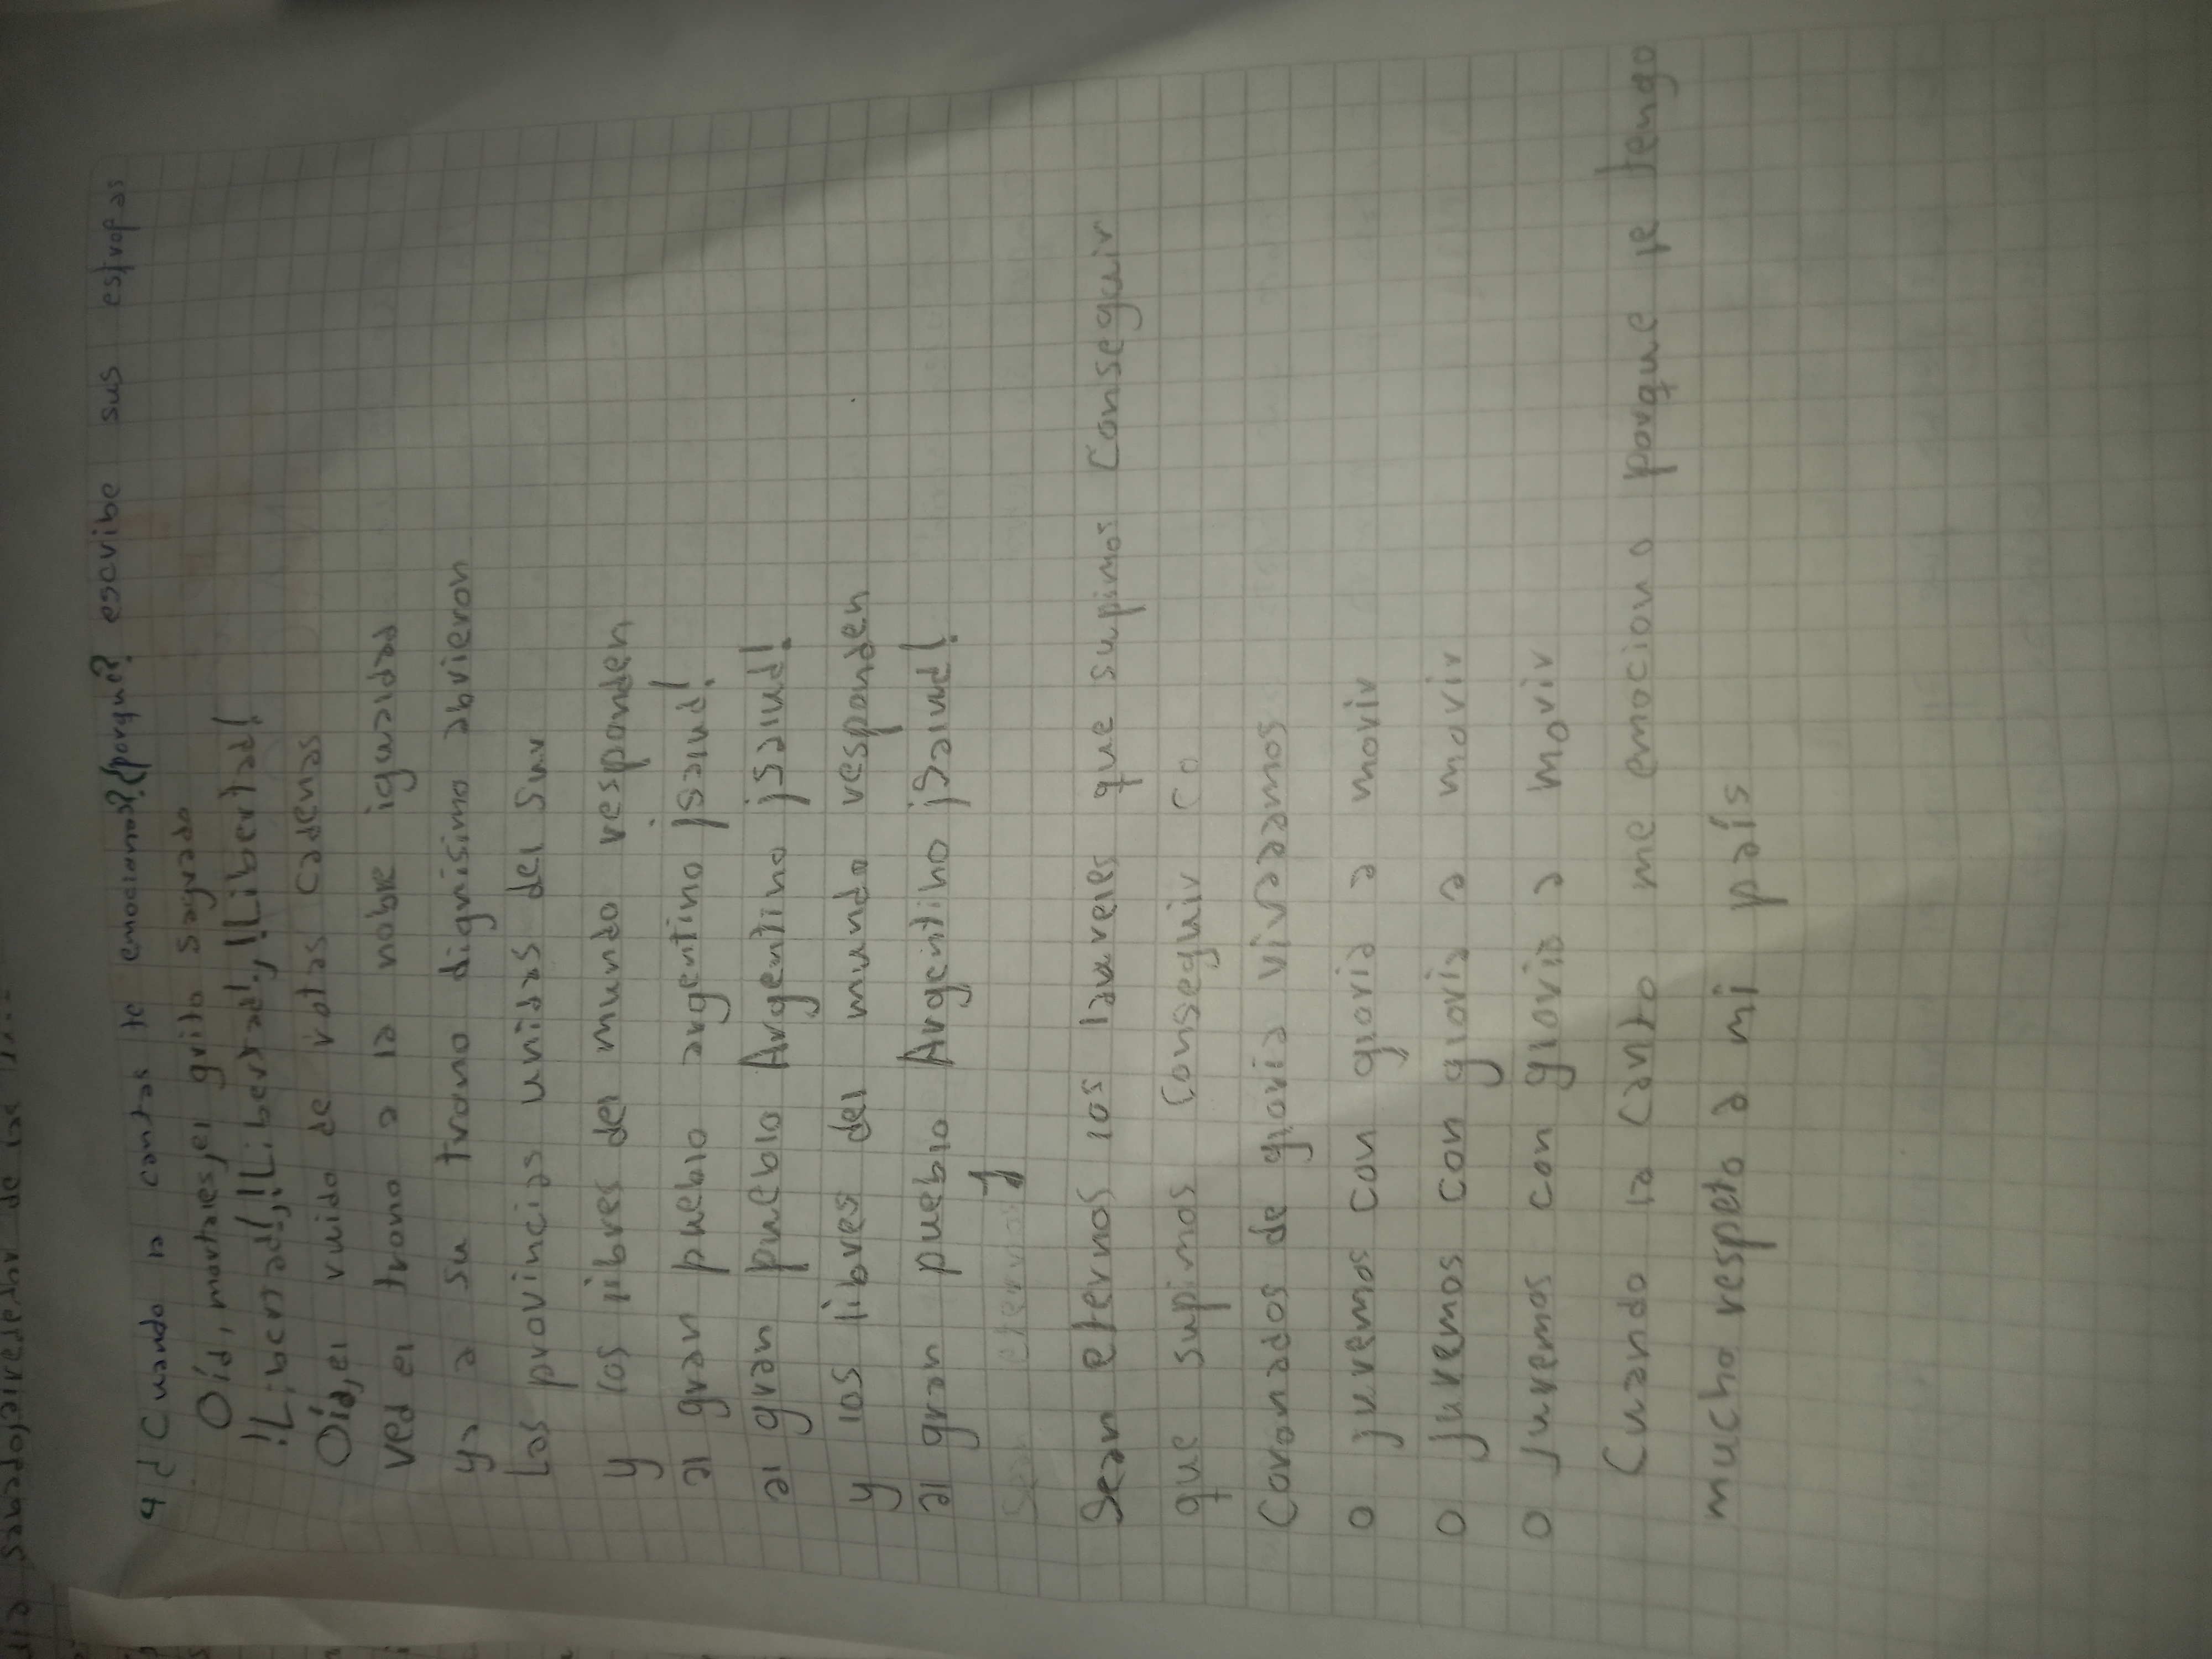 4d Cuando la cantas te emociona? ¿porqué? escribe sus estrofas
Oíd, mortales, el grito sagrado
!Libertad!, !Libertad!, !Libertad!
Oíd, el ruido de rotas cadenas
ved el trono a la noble igualdad
ya a su trono dignísimo abrieron
Las provincias unidas del Sur
y los libres del mundo responden
al gran pueblo argentino ¡salud!
al gran pueblo Argentino ¡Salud!
y los libres del mundo responden
al gran pueblo Argentino ¡Salud!
Sean eternos
y
Sean eternos los laureles que supimos Conseguir
que supimos Conseguir co
Coronados de gloria vivaamos
o juremos con gloria a morir
o juremos con gloria a morir
o juremos con gloria a morir
Cuando la canto me emociono porque le tengo
mucho respeto a mi país